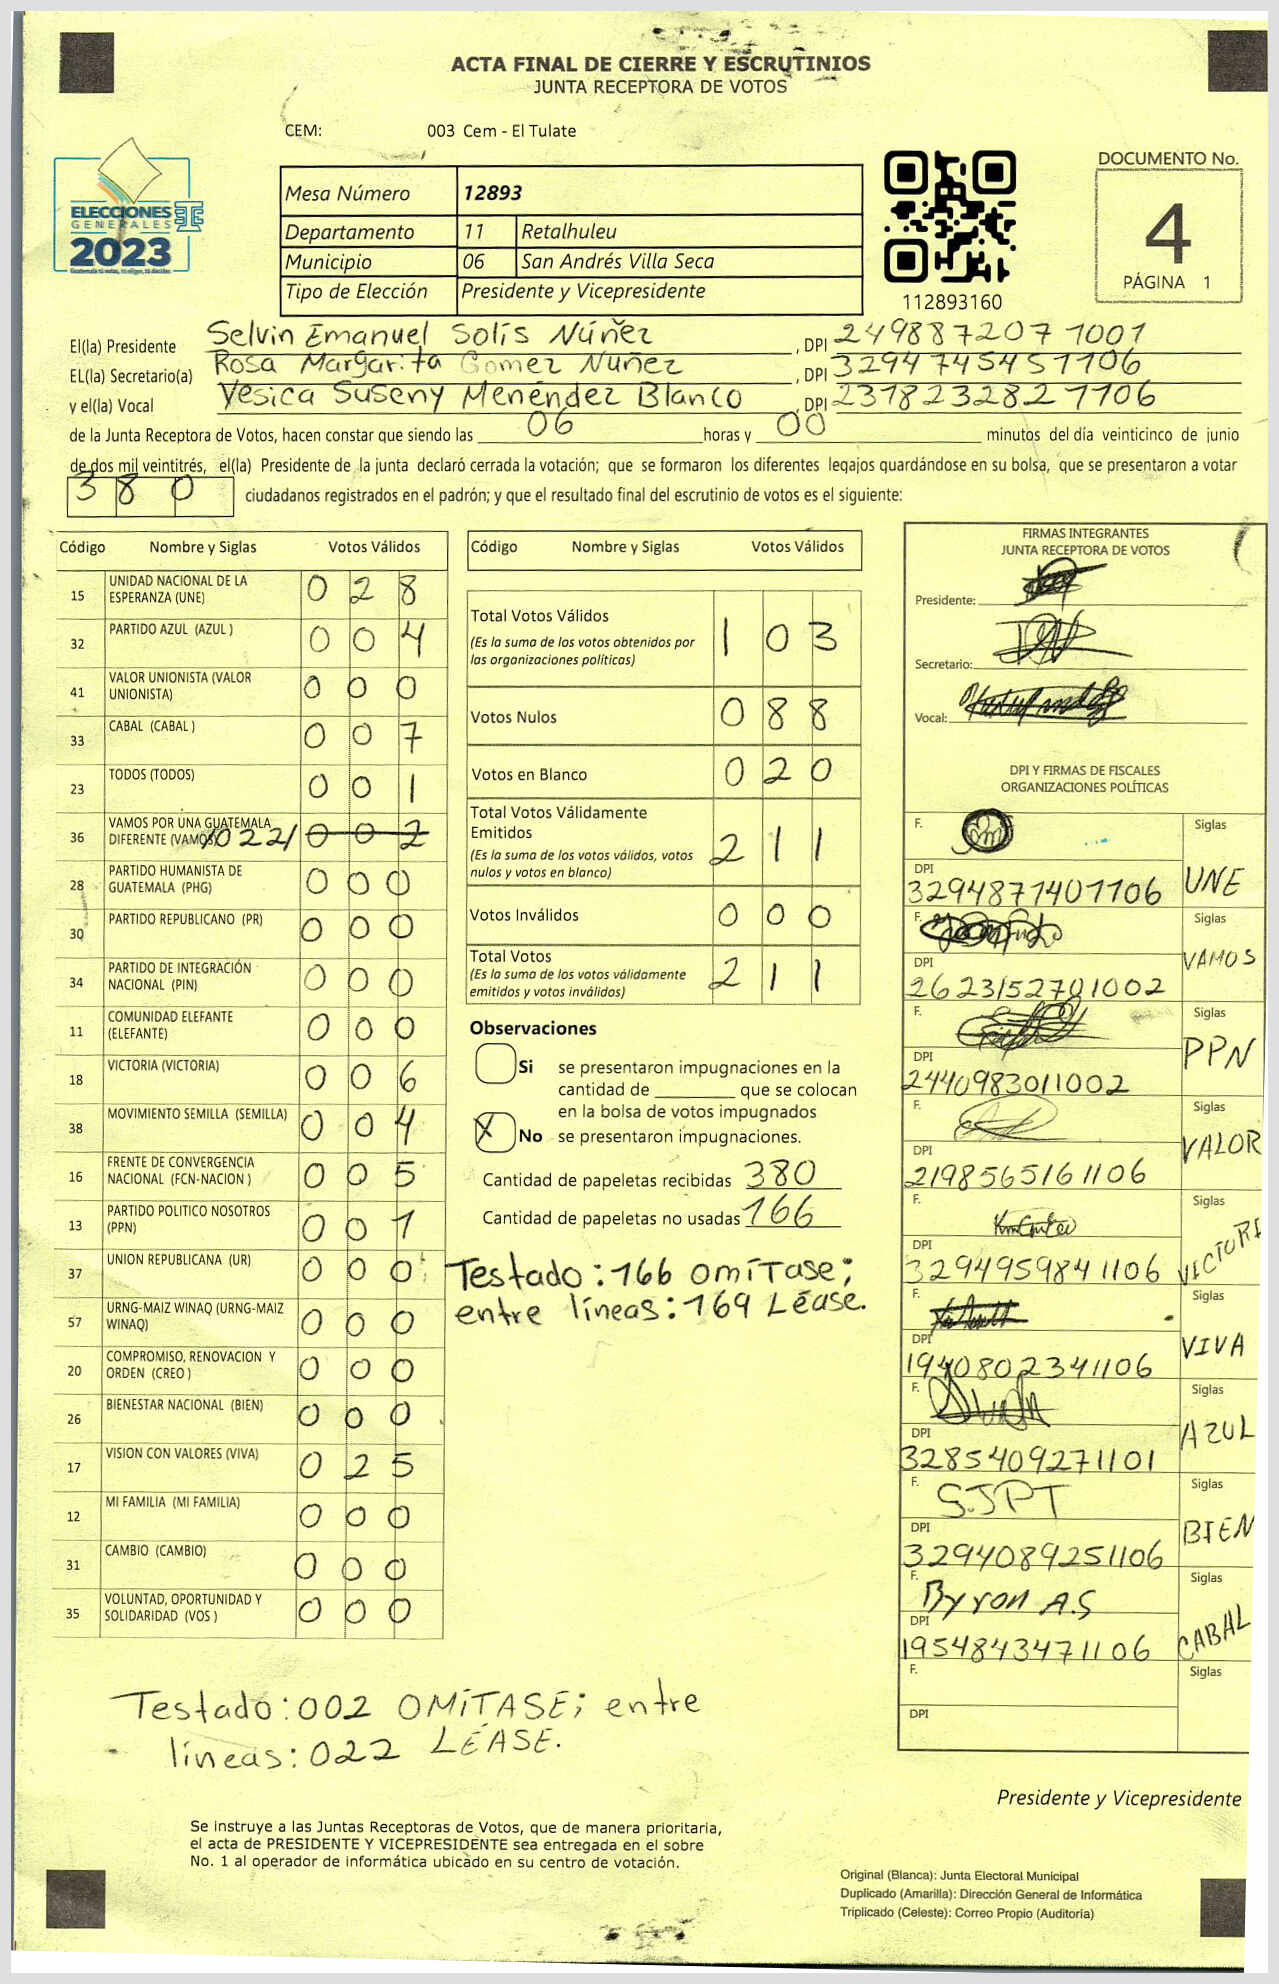 ACTA FINAL DE CIERRE Y ESCRUTINIOS
JUNTA RECEPTORA DE VOTOS
CEM: 003 Cem - El Tulate
ELECCIONES
GENERALES
2023
Mesa Número 12893
Departamento 11 Retalhuleu
Municipio 06 San Andrés Villa Seca
Tipo de Elección Presidente y Vicepresidente
112893160
DOCUMENTO No.
4
PÁGINA 1
El(la) Presidente Selvin Emanuel Solís Núñez, DPI 2498872071001
EL(la) Secretario(a) Rosa Margarita Gomez Nuñez, DPI 3294745451106
y el(la) Vocal Yesica Suseny Menéndez Blanco, DPI 2378232821106
de la Junta Receptora de Votos, hacen constar que siendo las 06 horas y 00 minutos del día veinticinco de junio
de dos mil veintitrés, el(la) Presidente de la junta declaró cerrada la votación; que se formaron los diferentes legajos guardándose en su bolsa, que se presentaron a votar
380 ciudadanos registrados en el padrón; y que el resultado final del escrutinio de votos es el siguiente:
Código Nombre y Siglas Votos Válidos
15 UNIDAD NACIONAL DE LA ESPERANZA (UNE) 028
32 PARTIDO AZUL (AZUL ) 004
41 VALOR UNIONISTA (VALOR UNIONISTA) 000
33 CABAL (CABAL ) 007
23 TODOS (TODOS) 001
36 VAMOS POR UNA GUATEMALA DIFERENTE (VAMOS) /022/ 002
28 PARTIDO HUMANISTA DE GUATEMALA (PHG) 000
30 PARTIDO REPUBLICANO (PR) 000
34 PARTIDO DE INTEGRACIÓN NACIONAL (PIN) 000
11 COMUNIDAD ELEFANTE (ELEFANTE) 000
18 VICTORIA (VICTORIA) 006
38 MOVIMIENTO SEMILLA (SEMILLA) 004
16 FRENTE DE CONVERGENCIA NACIONAL (FCN-NACION ) 005
13 PARTIDO POLITICO NOSOTROS (PPN) 001
37 UNION REPUBLICANA (UR) 000
57 URNG-MAIZ WINAQ (URNG-MAIZ WINAQ) 000
20 COMPROMISO, RENOVACION Y ORDEN (CREO ) 000
26 BIENESTAR NACIONAL (BIEN) 000
17 VISION CON VALORES (VIVA) 025
12 MI FAMILIA (MI FAMILIA) 000
31 CAMBIO (CAMBIO) 000
35 VOLUNTAD, OPORTUNIDAD Y SOLIDARIDAD (VOS ) 000
Testado: 002 OMÍTASE; entre
líneas: 022 LÉASE.
Código Nombre y Siglas Votos Válidos
Total Votos Válidos 103
(Es la suma de los votos obtenidos por
las organizaciones políticas)
Votos Nulos 088
Votos en Blanco 020
Total Votos Válidamente
Emitidos 211
(Es la suma de los votos válidos, votos
nulos y votos en blanco)
Votos Inválidos 000
Total Votos 211
(Es la suma de los votos válidamente
emitidos y votos inválidos)
Observaciones
Si se presentaron impugnaciones en la
cantidad de ________ que se colocan
en la bolsa de votos impugnados
X No se presentaron impugnaciones.
Cantidad de papeletas recibidas 380
Cantidad de papeletas no usadas 166
Testado: 166 omítase;
entre líneas: 169 Léase.
FIRMAS INTEGRANTES
JUNTA RECEPTORA DE VOTOS
Presidente:
Secretario:
Vocal:
DPI Y FIRMAS DE FISCALES
ORGANIZACIONES POLÍTICAS
F. Siglas
DPI 3294871401106 UNE
F. Siglas
DPI 2623152701002 VAMOS
F. Siglas
DPI 2440983011002 PPN
F. Siglas
DPI 2198565161106 VALOR
F. Siglas
DPI 3294959841106 VICTORI
F. Siglas
DPI 1940802341106 VIVA
F. Siglas
DPI 3285409271101 AZUL
F. SJPT Siglas
DPI 3294089251106 BIEN
F. Byron A.S Siglas
DPI 1954843471106 CABAL
F. Siglas
DPI
Presidente y Vicepresidente
Se instruye a las Juntas Receptoras de Votos, que de manera prioritaria,
el acta de PRESIDENTE Y VICEPRESIDENTE sea entregada en el sobre
No. 1 al operador de informática ubicado en su centro de votación.
Original (Blanca): Junta Electoral Municipal
Duplicado (Amarilla): Dirección General de Informática
Triplicado (Celeste): Correo Propio (Auditoría)